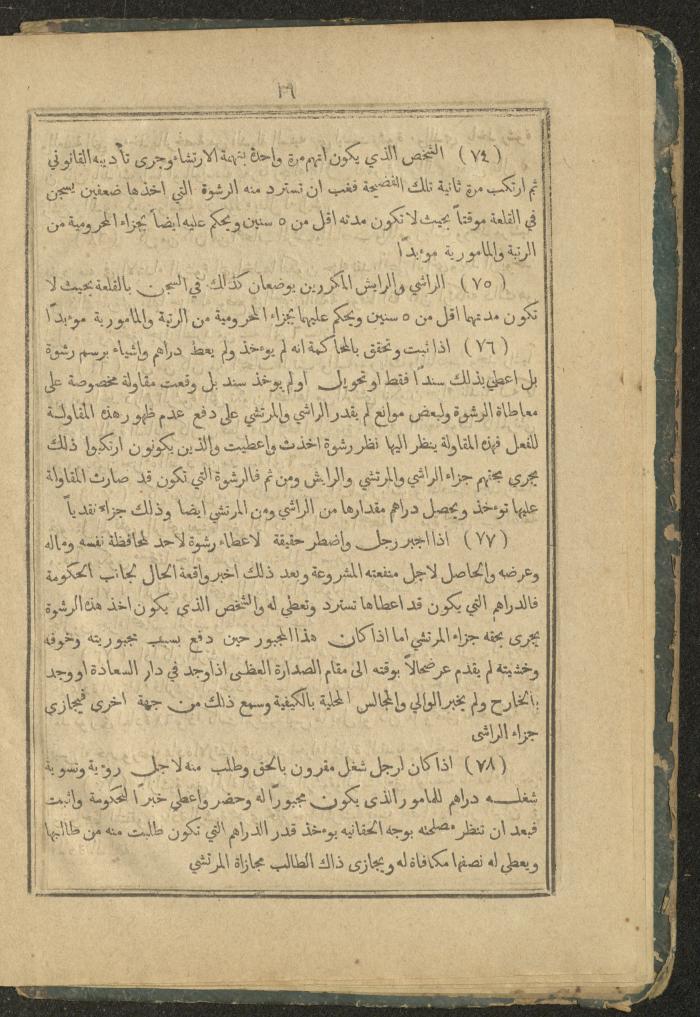 ١٩
(٧٤) الشخص الذي يكون اتهم مرة واحدة بتهمة الارتشاء وجرى تأديبه القانوني
ثم ارتكب مرة ثانية تلك الفضيحة فغب ان تسترد منه الرشوة التي اخذها ضعفين يسجن
في القلعة موقتاً بحيث لا تكون مدته اقل من ٥ سنين ويحكم عليه ايضاً بجزاء المحرومية من
الرتبة والمامورية موءبداً
(٧٥) الراشي والرايش المكررين يوضعان كذلك في السجن بالقلعة بحيث لا
تكون مدتهما اقل من ٥ سنين ويحكم عليهما بجزاء المحرومية من الرتبة والمامورية موءبداً
(٧٦) اذا ثبت وتحقق بالمحاكمة انه لم يوءخذ ولم يعط دراهم واشياء برسم رشوة
بل اعطي بذلك سنداً فقط او تحويل او لم يوخذ سند بل وقعت مقاولة مخصوصة على
معاطاة الرشوة ولبعض موانع لم يقدر الراشي والمرتشي على دفع عدم ظهور هذه المقاولة
للفعل فهذه المقاولة ينظر اليها نظر رشوة اخذت واعطيت والذين يكونون ارتكبوا ذلك
يجري بحقهم جزاء الراشي والمرتشي والرايش ومن ثم فالرشوة التي تكون قد صارت المقاولة
عليها توءخذ ويحصل دراهم مقدارها من الراشي ومن المرتشي ايضا وذلك جزاءً نقدياً
(٧٧) اذا اجبر رجل واضطر حقيقة لاعطاء رشوة لاحد لمحافظة نفسه وماله
وعرضه والحاصل لاجل منفعته المشروعة وبعد ذلك اخبر واقعة الحال لجانب الحكومة
فالدراهم التي يكون قد اعطاها تسترد وتعطي له والشخص الذي يكون اخذ هذه الرشوة
يجرى بحقه جزاء المرتشي اما اذا كان هذا المجبور حين دفع بسبب مجبوريته وخوفه
وخشيته لم يقدم عرضحالاً بوقته الى مقام الصدارة العظمى اذا وجد في دار السعادة او وجد
بالخارج ولم يخبر الوالي والمجالس المحلية بالكيفية وسمع ذلك من جهة اخرى فيجازي
جزاء الراشى
(٧٨) اذا كان لرجل شغل مقرون بالحق وطلب منه لاجل روءية وتسوية
شغله دراهم للمامور الذى يكون مجبوراً له وحضر واعطي خبراً للحكومة واثبت
فبعد ان تنظر مصلحته بوجه الحقانيه يوءخذ قدر الدراهم التي تكون طالبت منه من طالبها
ويعطي له نصفها مكافاة له ويجازى ذاك الطالب مجازاة المرتشي